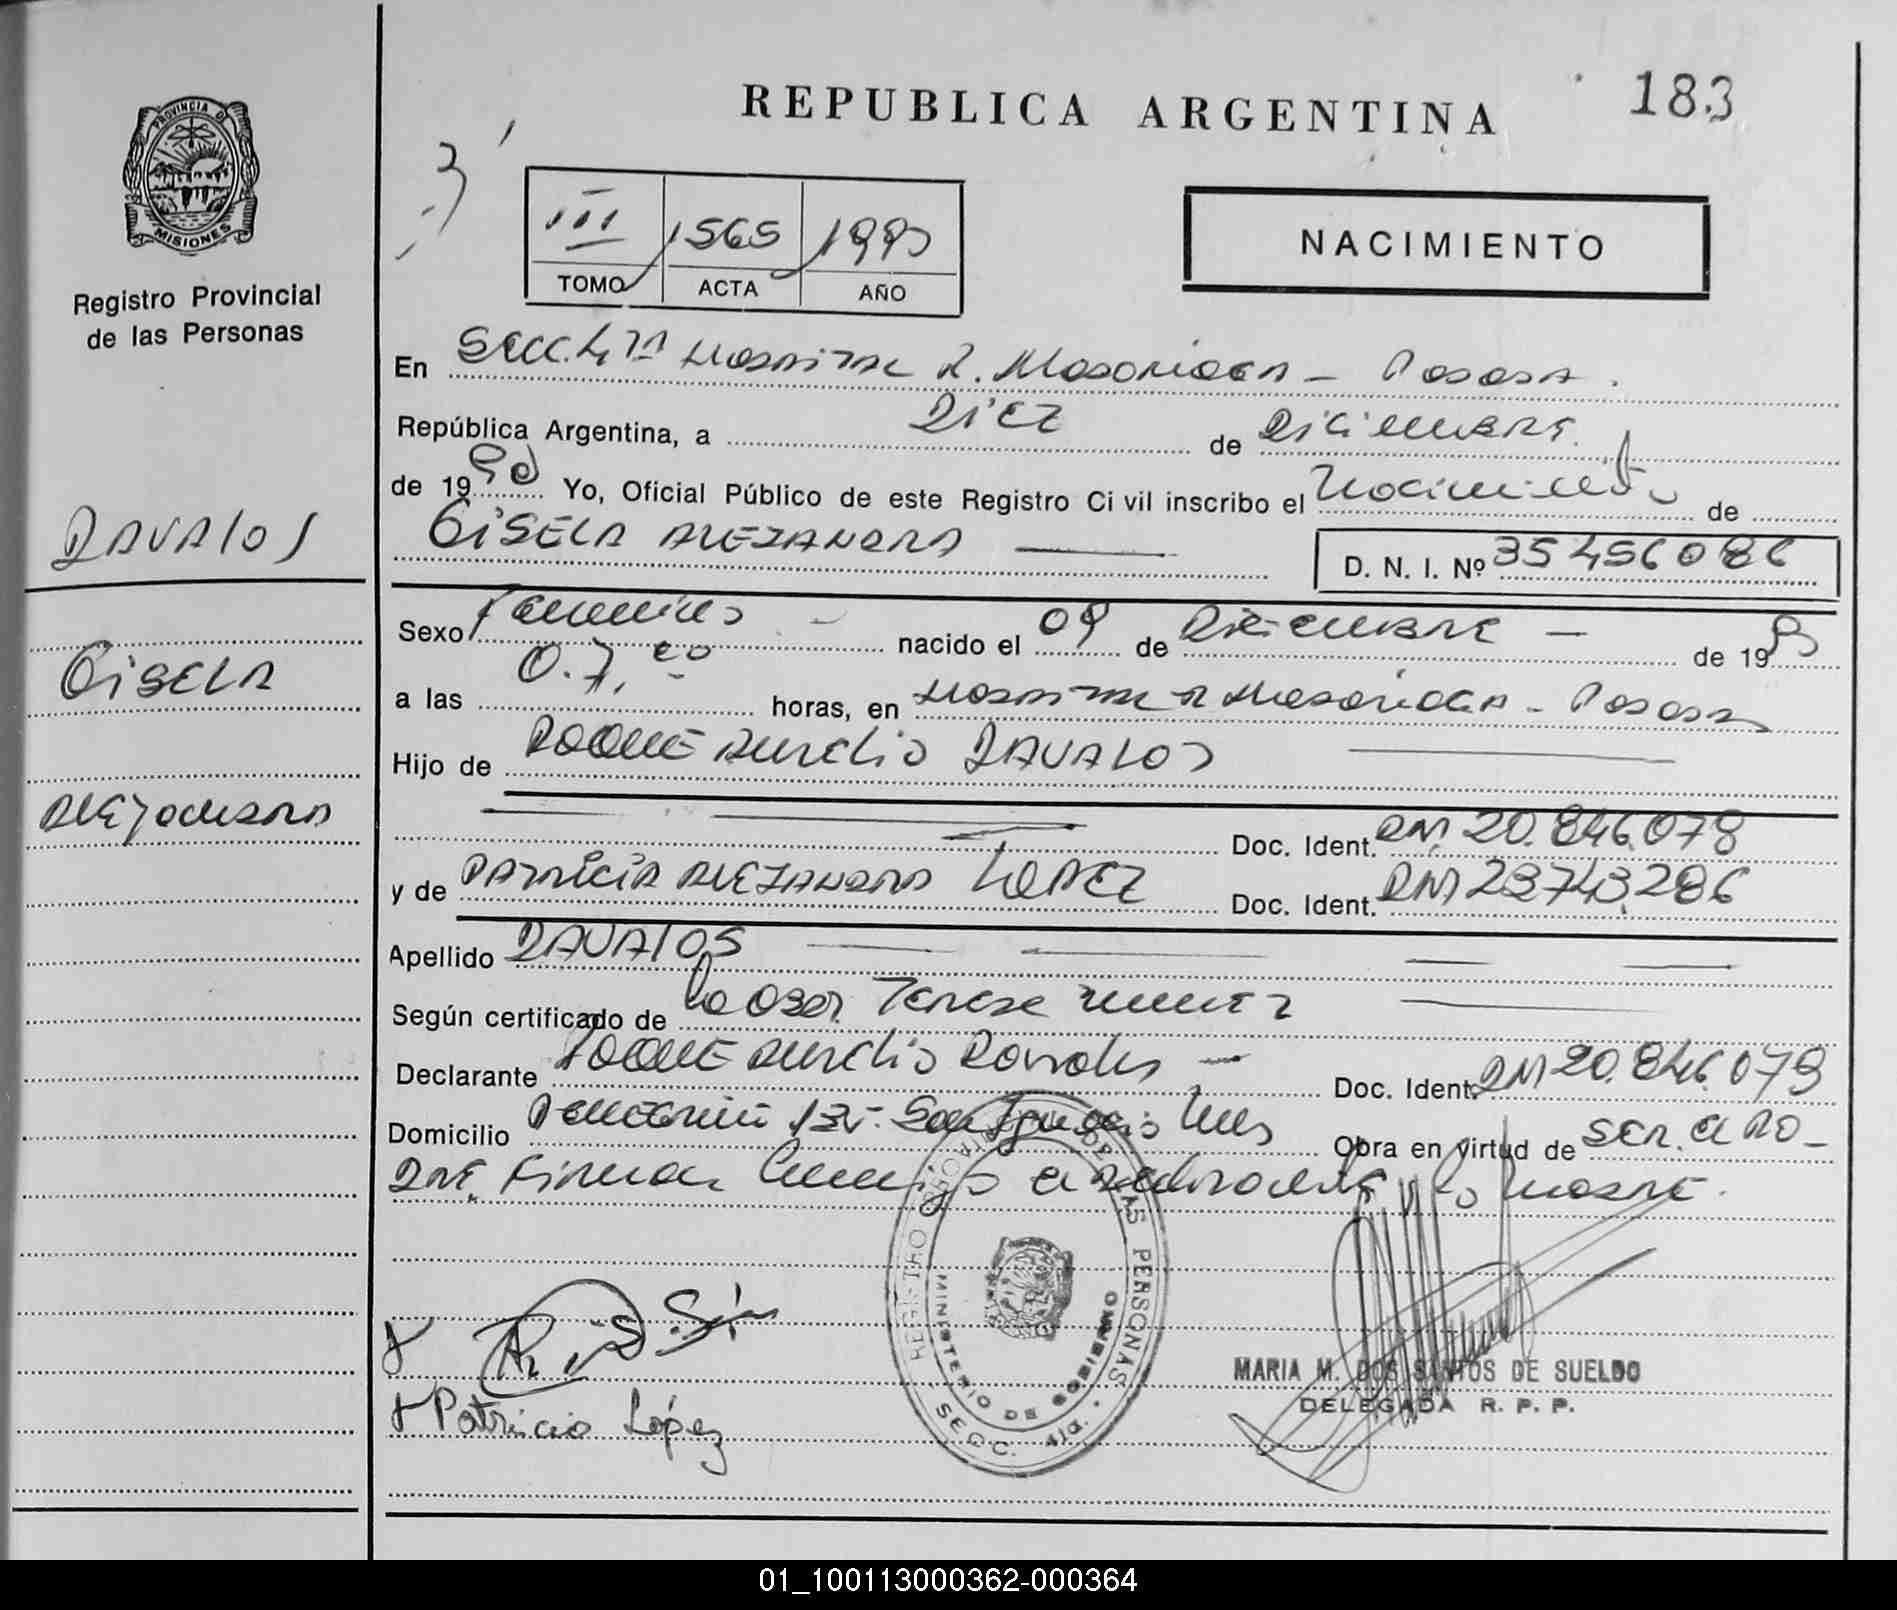 REPUBLICA ARGENTINA
183
PROVINCIA D
MISIONES
Registro Provincial
de las Personas
III 1565 1990
TOMO ACTA AÑO
NACIMIENTO
En Secc. 4ta Hospital R. Madariaga - Posadas.
República Argentina, a Diez de Diciembre
de 1990 Yo, Oficial Público de este Registro Ci vil inscribo el Nacimiento de
GISELA ALEJANDRA D. N. I. Nº 35456086
DAVALOS
GISELA
ALEJANDRA
Sexo Femenino nacido el 09 de Diciembre de 1990
a las 07, horas, en Hospital R Madariaga - Posadas
Hijo de ROQUE AURELIO DAVALOS
Doc. Ident. DNI 20.846.078
y de PATRICIA ALEJANDRA LOPEZ Doc. Ident. DNI 23743,286
Apellido DAVALOS
Según certificado de Teresa
Declarante ROQUE AURELIO Davalos Doc. Ident. DNI 20.846.078
Domicilio San Ignacio Mnes Obra en virtud de ser el PA-
DRE, Firman el declarante y la madre.
REGISTRO PROVINCIAL DE LAS PERSONAS
MINISTERIO DE GOBIERNO
SECC. 4ta.
Patricia López
MARIA M. DOS SANTOS DE SUELDO
DELEGADA R. P. P.
01_100113000362-000364